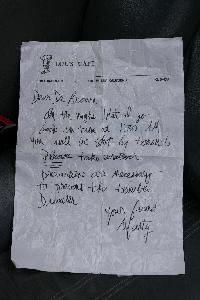 LOU'S CAFE
Dear Dr. Brown,
On the night that I go
back in time at 1:30 AM
you will be shot by terrorists
please take whatever
precautions are necessary
to prevent this terrible
Disaster.
Your friend
Marty